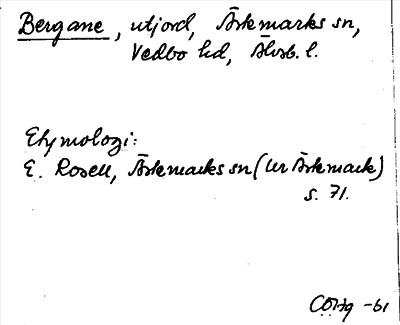 Bergane, utjord, Ärtemarks sn,
Vedbo hd, Älvsb. l.
Etymologi:
E. Rosell, Ärtemarks sn (Ur Ärtemark)
s. 71.
-61